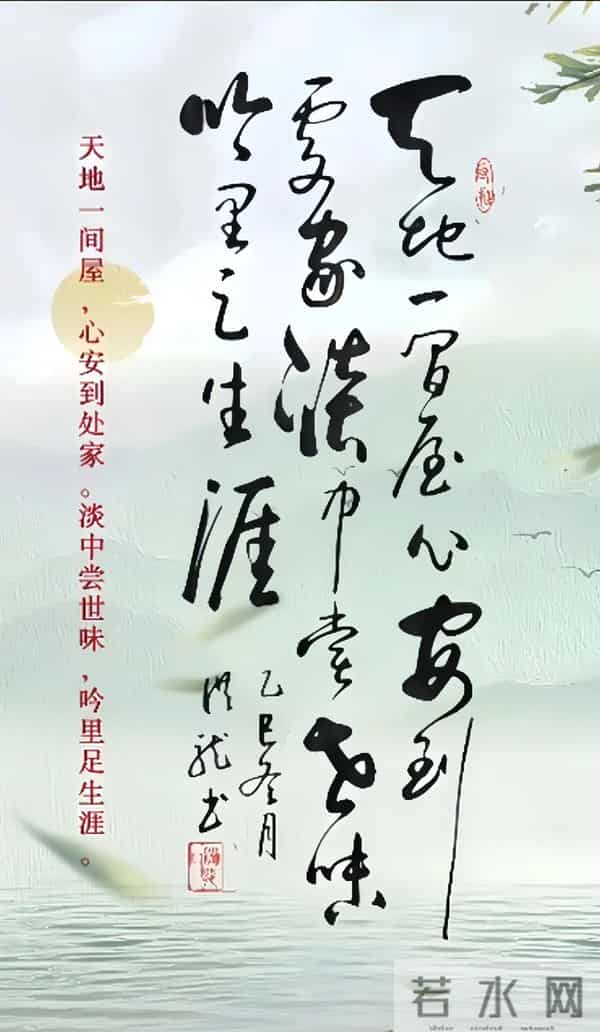 天地一间屋心安到
处家淡中尝世味
吟里足生涯
乙巳冬月
洪龙书
天地一间屋，心安到处家。淡中尝世味，吟里足生涯。
若水网